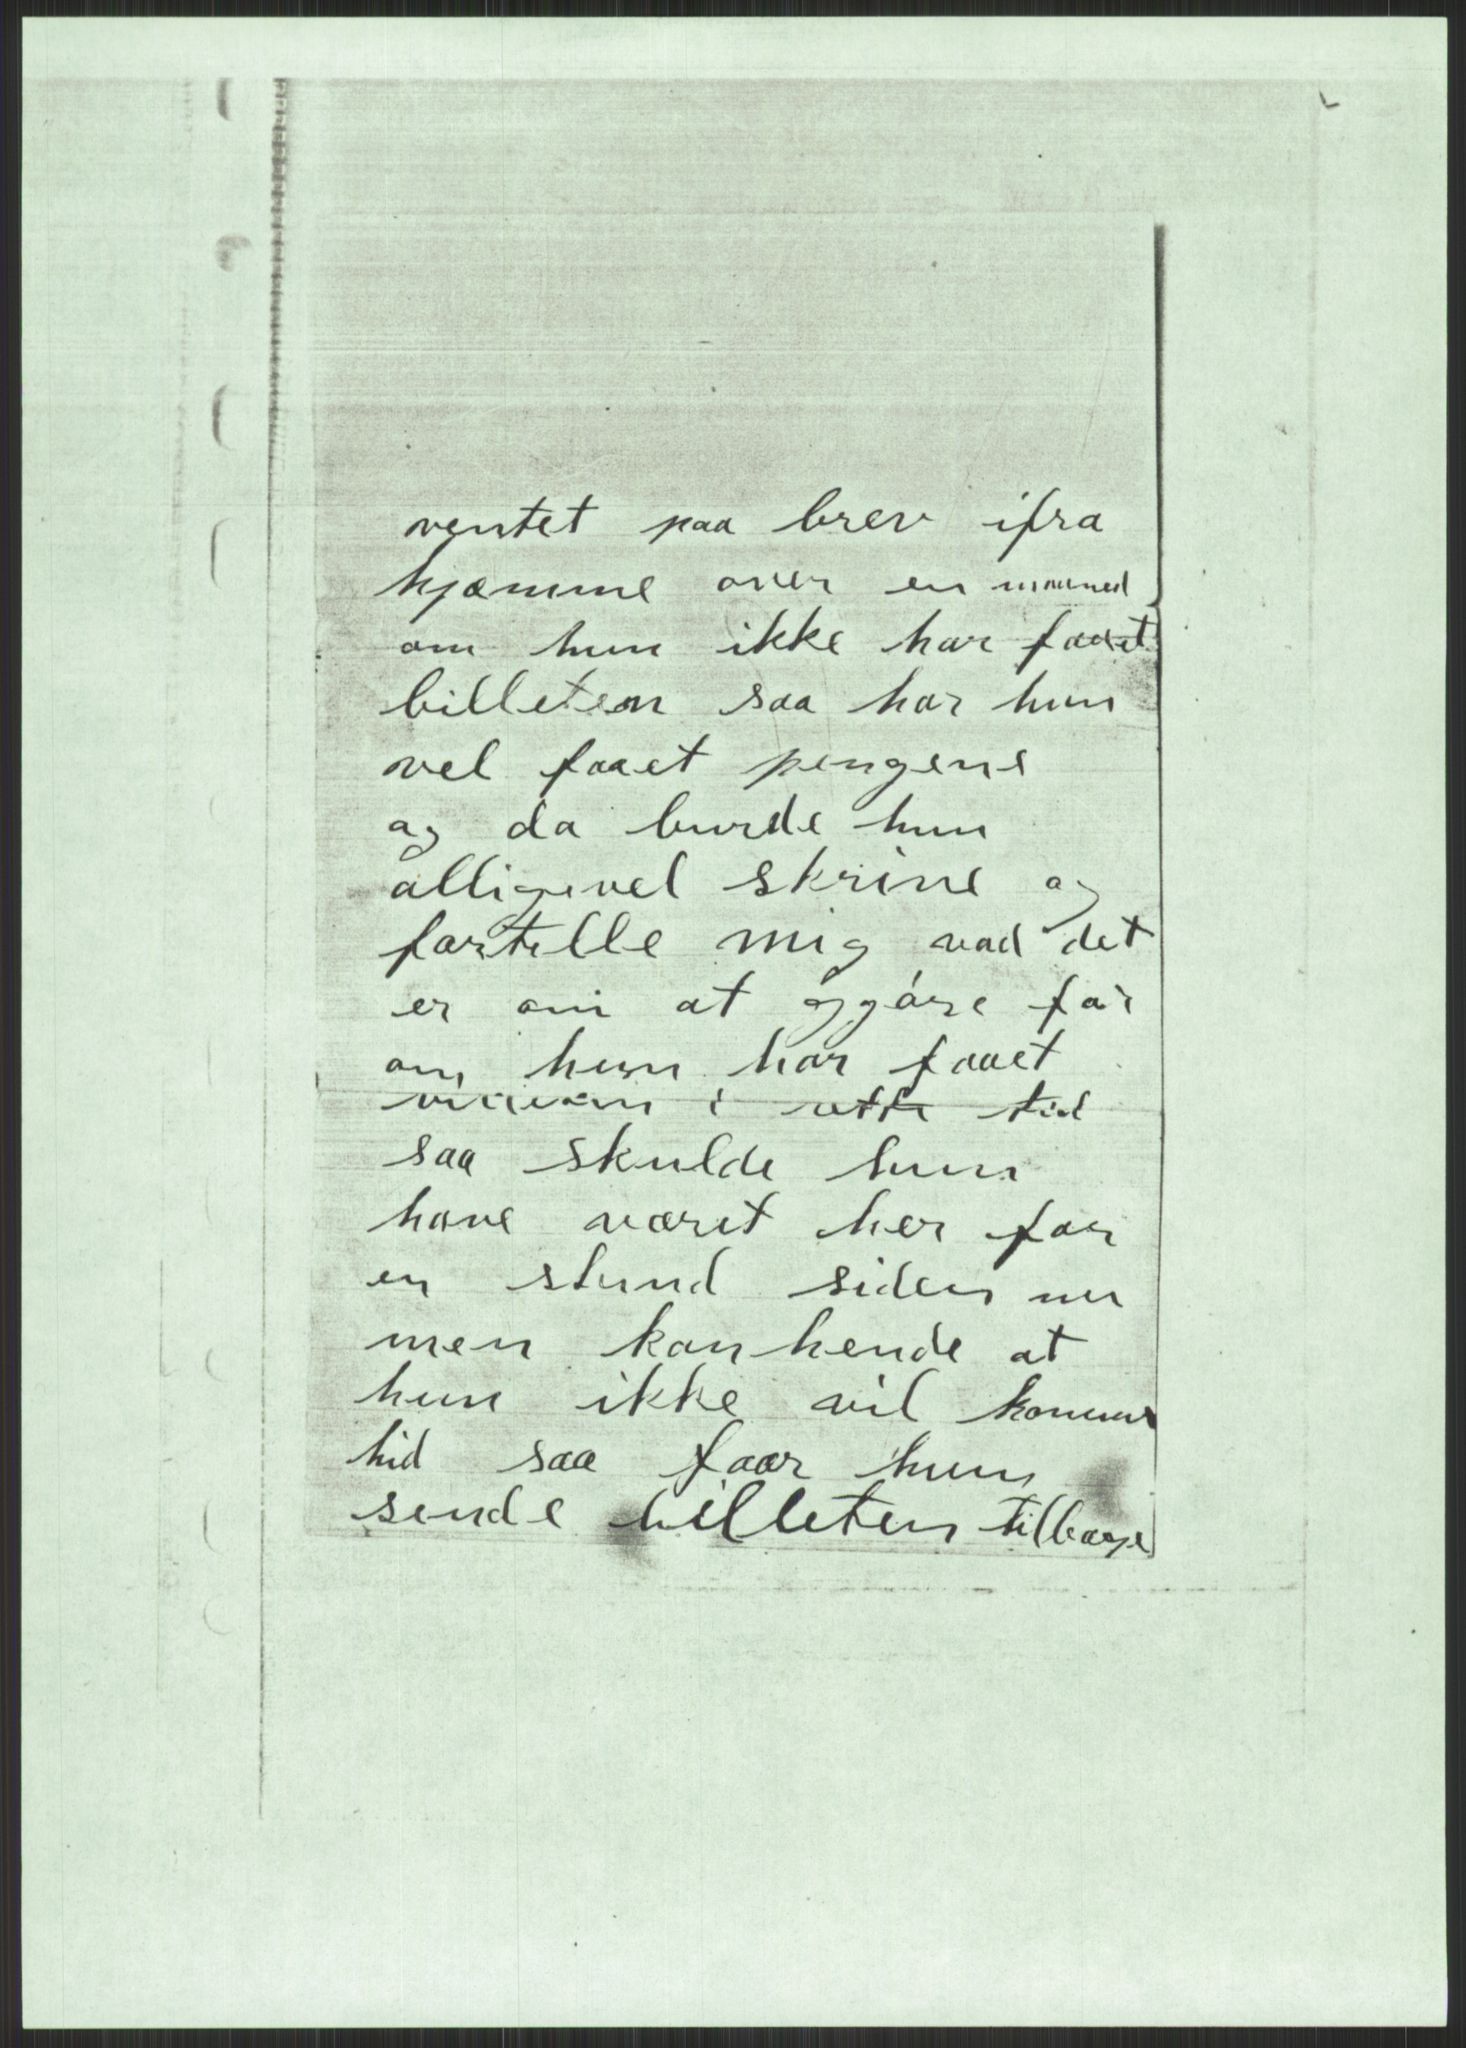 ventet paa brev ifra
hjæmme over en maaned
om hun ikke har faaet
billeten saa har hun
vel faaet pengene
og da burde hun
alligevel skrive og
fortelle mig vad det
er om at gjøre for
om hun har faaet
i rette tid
saa skulde hun
have været her for
en stund siden nu
men kanhende at
hun ikke vil komme
hid saa faar hun
sende billeten tilbage